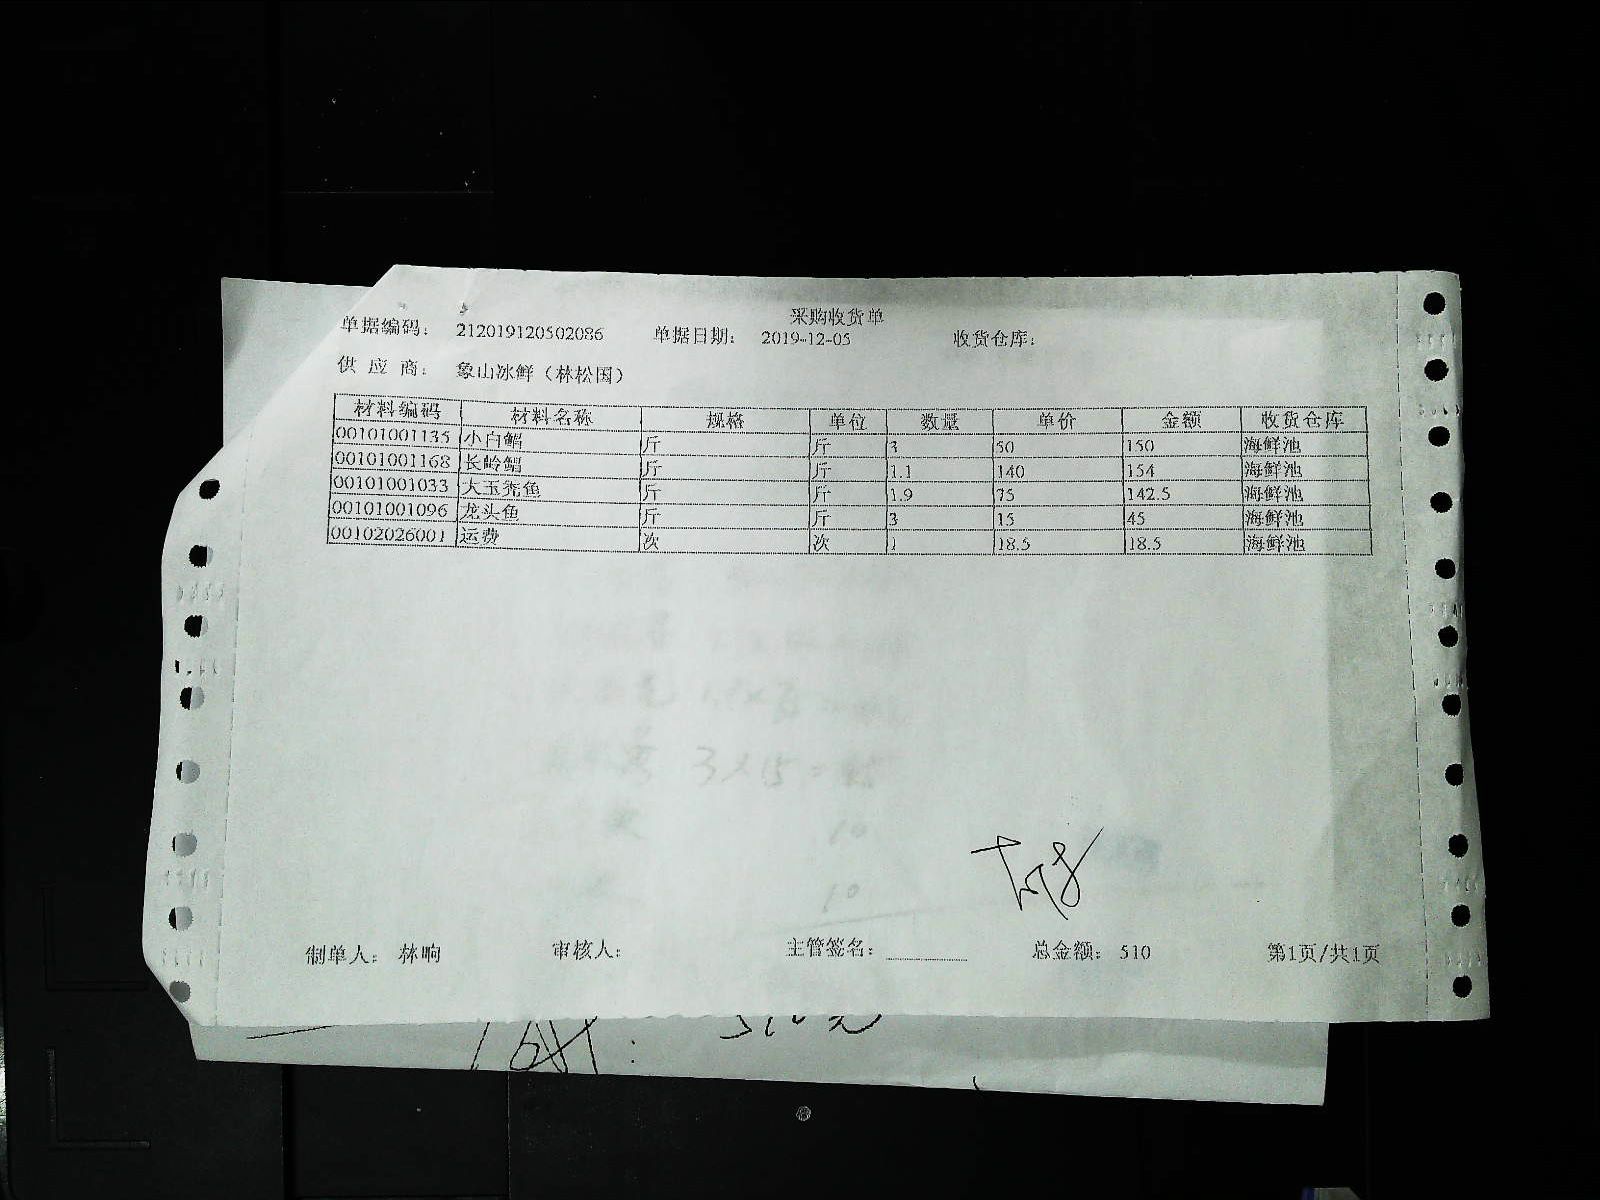 采购收货单
单据编码： 212019120502086 单据日期： 2019-12-05 收货仓库：
供 应 商： 象山冰鲜（林松国）
材料编码 材料名称 规格 单位 数量 单价 金额 收货仓库
00101001135 小白鲳 斤 斤 3 50 150 海鲜池
00101001168 长岭鲳 斤 斤 1.1 140 154 海鲜池
00101001033 大玉秃鱼 斤 斤 1.9 75 142.5 海鲜池
00101001096 龙头鱼 斤 斤 3 15 45 海鲜池
00102026001 运费 次 次 1 18.5 18.5 海鲜池
3×15=45
10
10
制单人： 林响 审核人： 主管签名： 总金额： 510 第1页/共1页